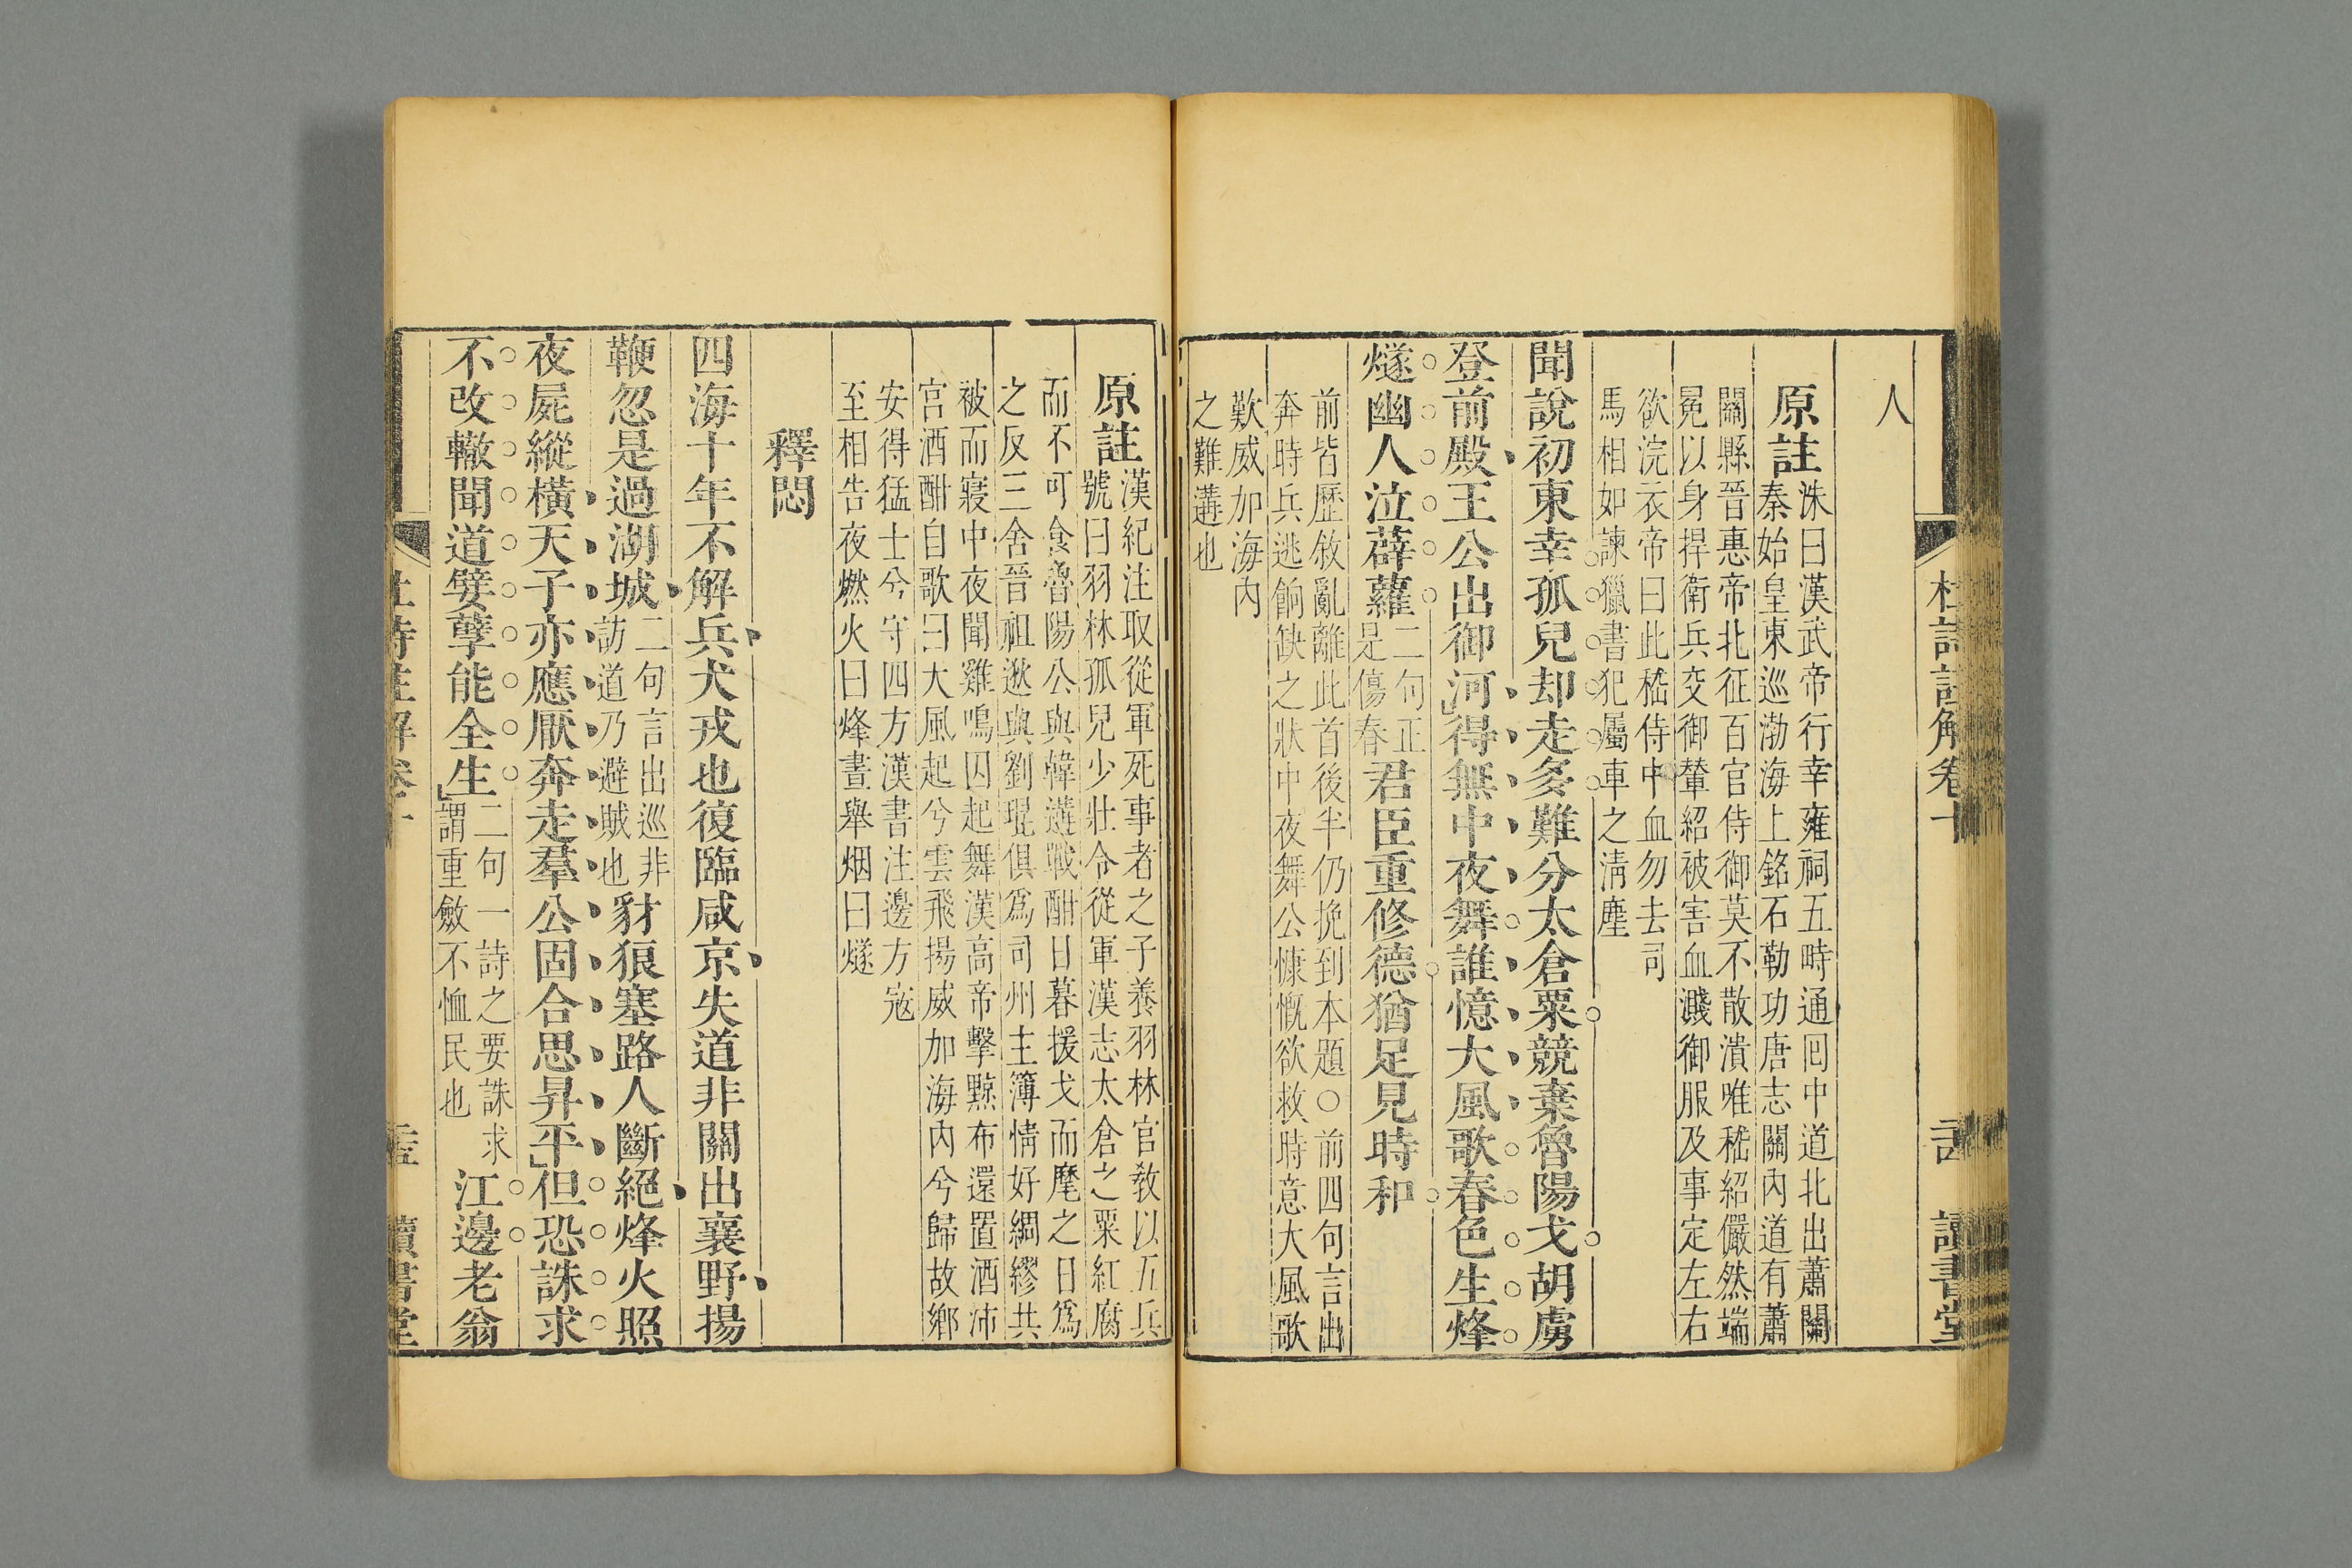 杜詩註解卷十
讀書堂
人
原註
洙曰漢武帝行幸雍祠五畤通囘中道北出蕭關
秦始皇東巡渤海上銘石勒功唐志關內道有蕭
關縣晉惠帝北征百官侍御莫不散潰唯嵇紹儼然端
冕以身捍衛兵交御輦紹被害血濺御服及事定左右
欲浣衣帝曰此嵇侍中血勿去司
馬相如諫獵書犯屬車之淸塵
聞說初東幸孤兒却走多難分太倉粟競棄魯陽戈胡虜
登前殿王公出御河得無中夜舞誰憶大風歌春色生烽
燧幽人泣薜蘿
二句正
是傷春
君臣重修德猶足見時和
前皆歷敘亂離此首後半仍挽到本題○前四句言出
奔時兵逃餉缺之狀中夜舞公慷慨欲救時意大風歌
歎威加海內
之難遘也
原註
漢紀注取從軍死事者之子養羽林官敎以五兵
號曰羽林孤兒少壯令從軍漢志太倉之粟紅腐
而不可食魯陽公與韓遘戰酣日暮援戈而麾之日爲
之反三舍晉祖逖與劉琨俱爲司州主簿情好綢繆共
被而寢中夜聞雞鳴因起舞漢高帝擊黥布還置酒沛
宮酒酣自歌曰大風起兮雲飛揚威加海內兮歸故鄉
安得猛士兮守四方漢書注邊方寇
至相告夜燃火曰烽晝舉烟曰燧
釋悶
四海十年不解兵犬戎也復臨咸京失道非關出襄野揚
鞭忽是過湖城
二句言出巡非
訪道乃避賊也
豺狼塞路人斷絕烽火照
夜屍縱橫天子亦應厭奔走羣公固合思昇平但恐誅求
不改轍聞道嬖孽能全生
二句一詩之要誅求
謂重斂不恤民也
江邊老翁
杜詩註解卷十
讀書堂